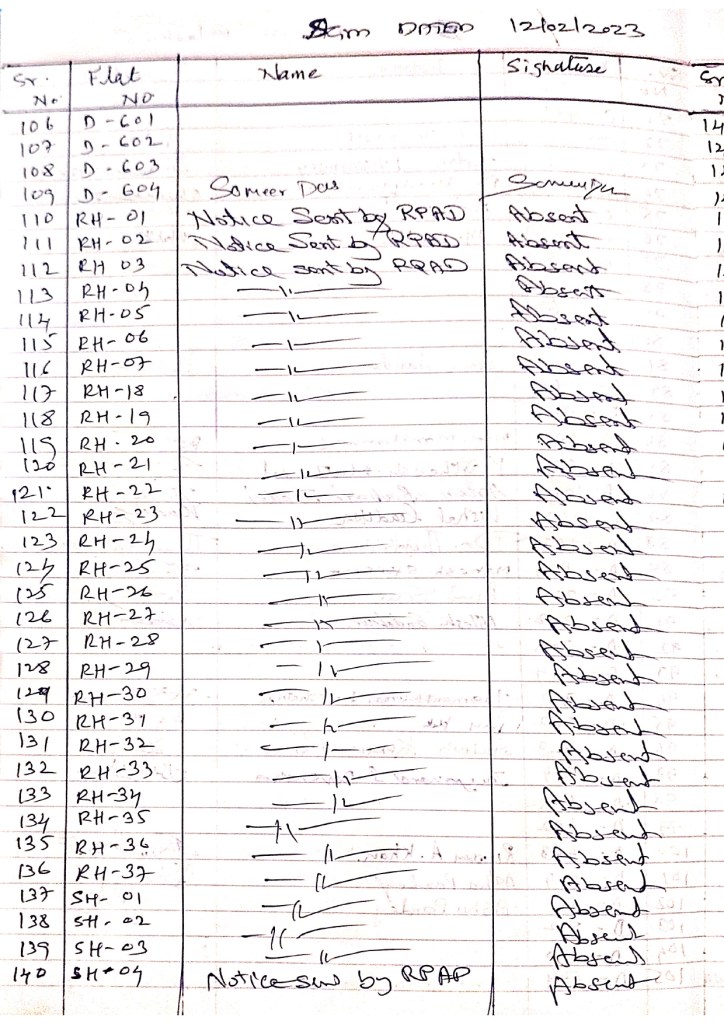 SGM DATED 12/02/2023
Sr. No. Flat NO Name Signature Sr
106 D-601 14
107 D-602 12
108 D-603
109 D-604 Sameer Das
110 RH-01 Notice Sent by RPAD Absent
111 RH-02 Notice Sent by RPAD Absent
112 RH 03 Notice sent by RPAD Absent
113 RH-04 —〃— Absent
114 RH-05 —〃— Absent
115 RH-06 —〃— Absent
116 RH-07 —〃— Absent
117 RH-18 —〃— Absent
118 RH-19 —〃— Absent
119 RH-20 —〃— Absent
120 RH-21 —〃— Absent
121. RH-22 —〃— Absent
122 RH-23 —〃— Absent
123 RH-24 —〃— Absent
124 RH-25 —〃— Absent
125 RH-26 —〃— Absent
126 RH-27 —〃— Absent
127 RH-28 —〃— Absent
128 RH-29 —〃— Absent
129 RH-30 —〃— Absent
130 RH-31 —〃— Absent
131 RH-32 —〃— Absent
132 RH-33 —〃— Absent
133 RH-34 —〃— Absent
134 RH-35 —〃— Absent
135 RH-36 —〃— Absent
136 RH-37 —〃— Absent
137 SH-01 —〃— Absent
138 SH-02 —〃— Absent
139 SH-03 —〃— Absent
140 SH-04 Notice sent by RPAD Absent